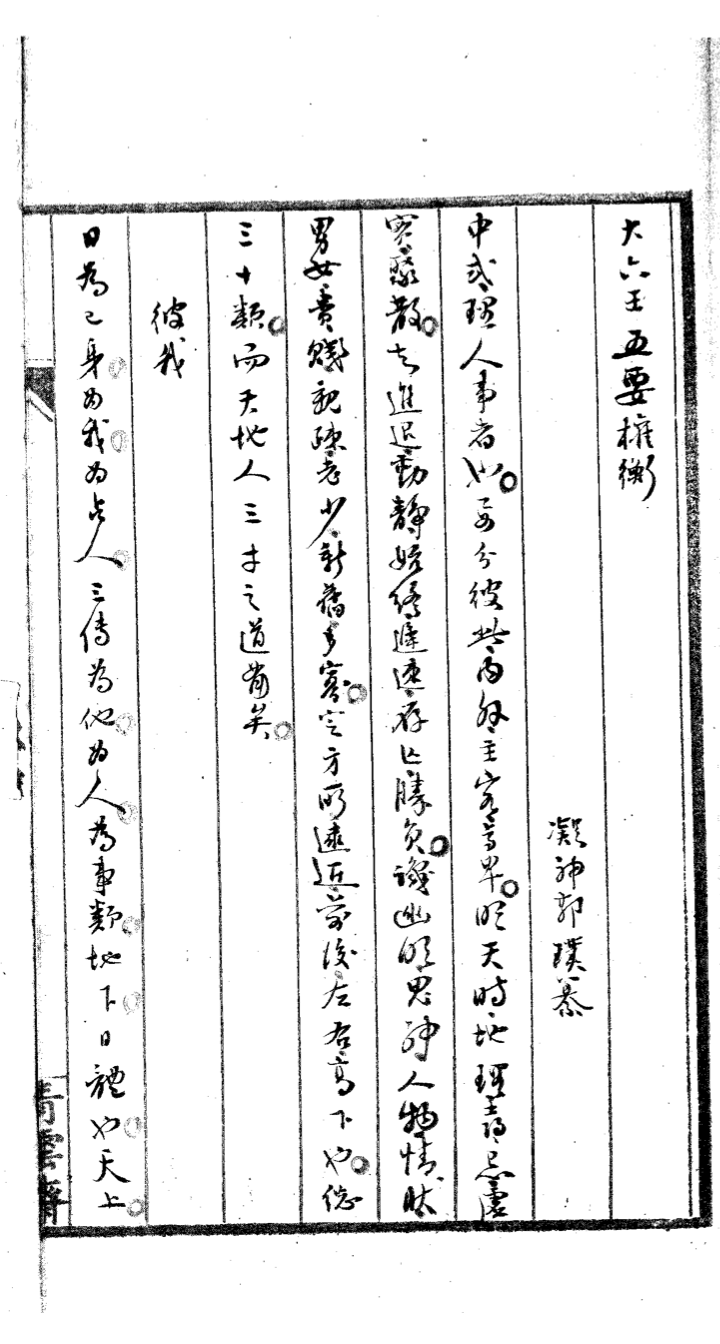 大六壬五要權衡
凝神郭璞纂
中式理人事者也要分彼此內外主客尊卑明天時地理喜忌虛
實聚散去進退動靜始終遲速存亡勝負識幽明鬼神人物情狀
男女貴賤親疎老少新舊多寡定方所遠近前後左右高下也總
三十類而天地人三才之道備矣
彼我
日為己身為我為占人三傳為他為人為事類地下日體也天上
青雲齋